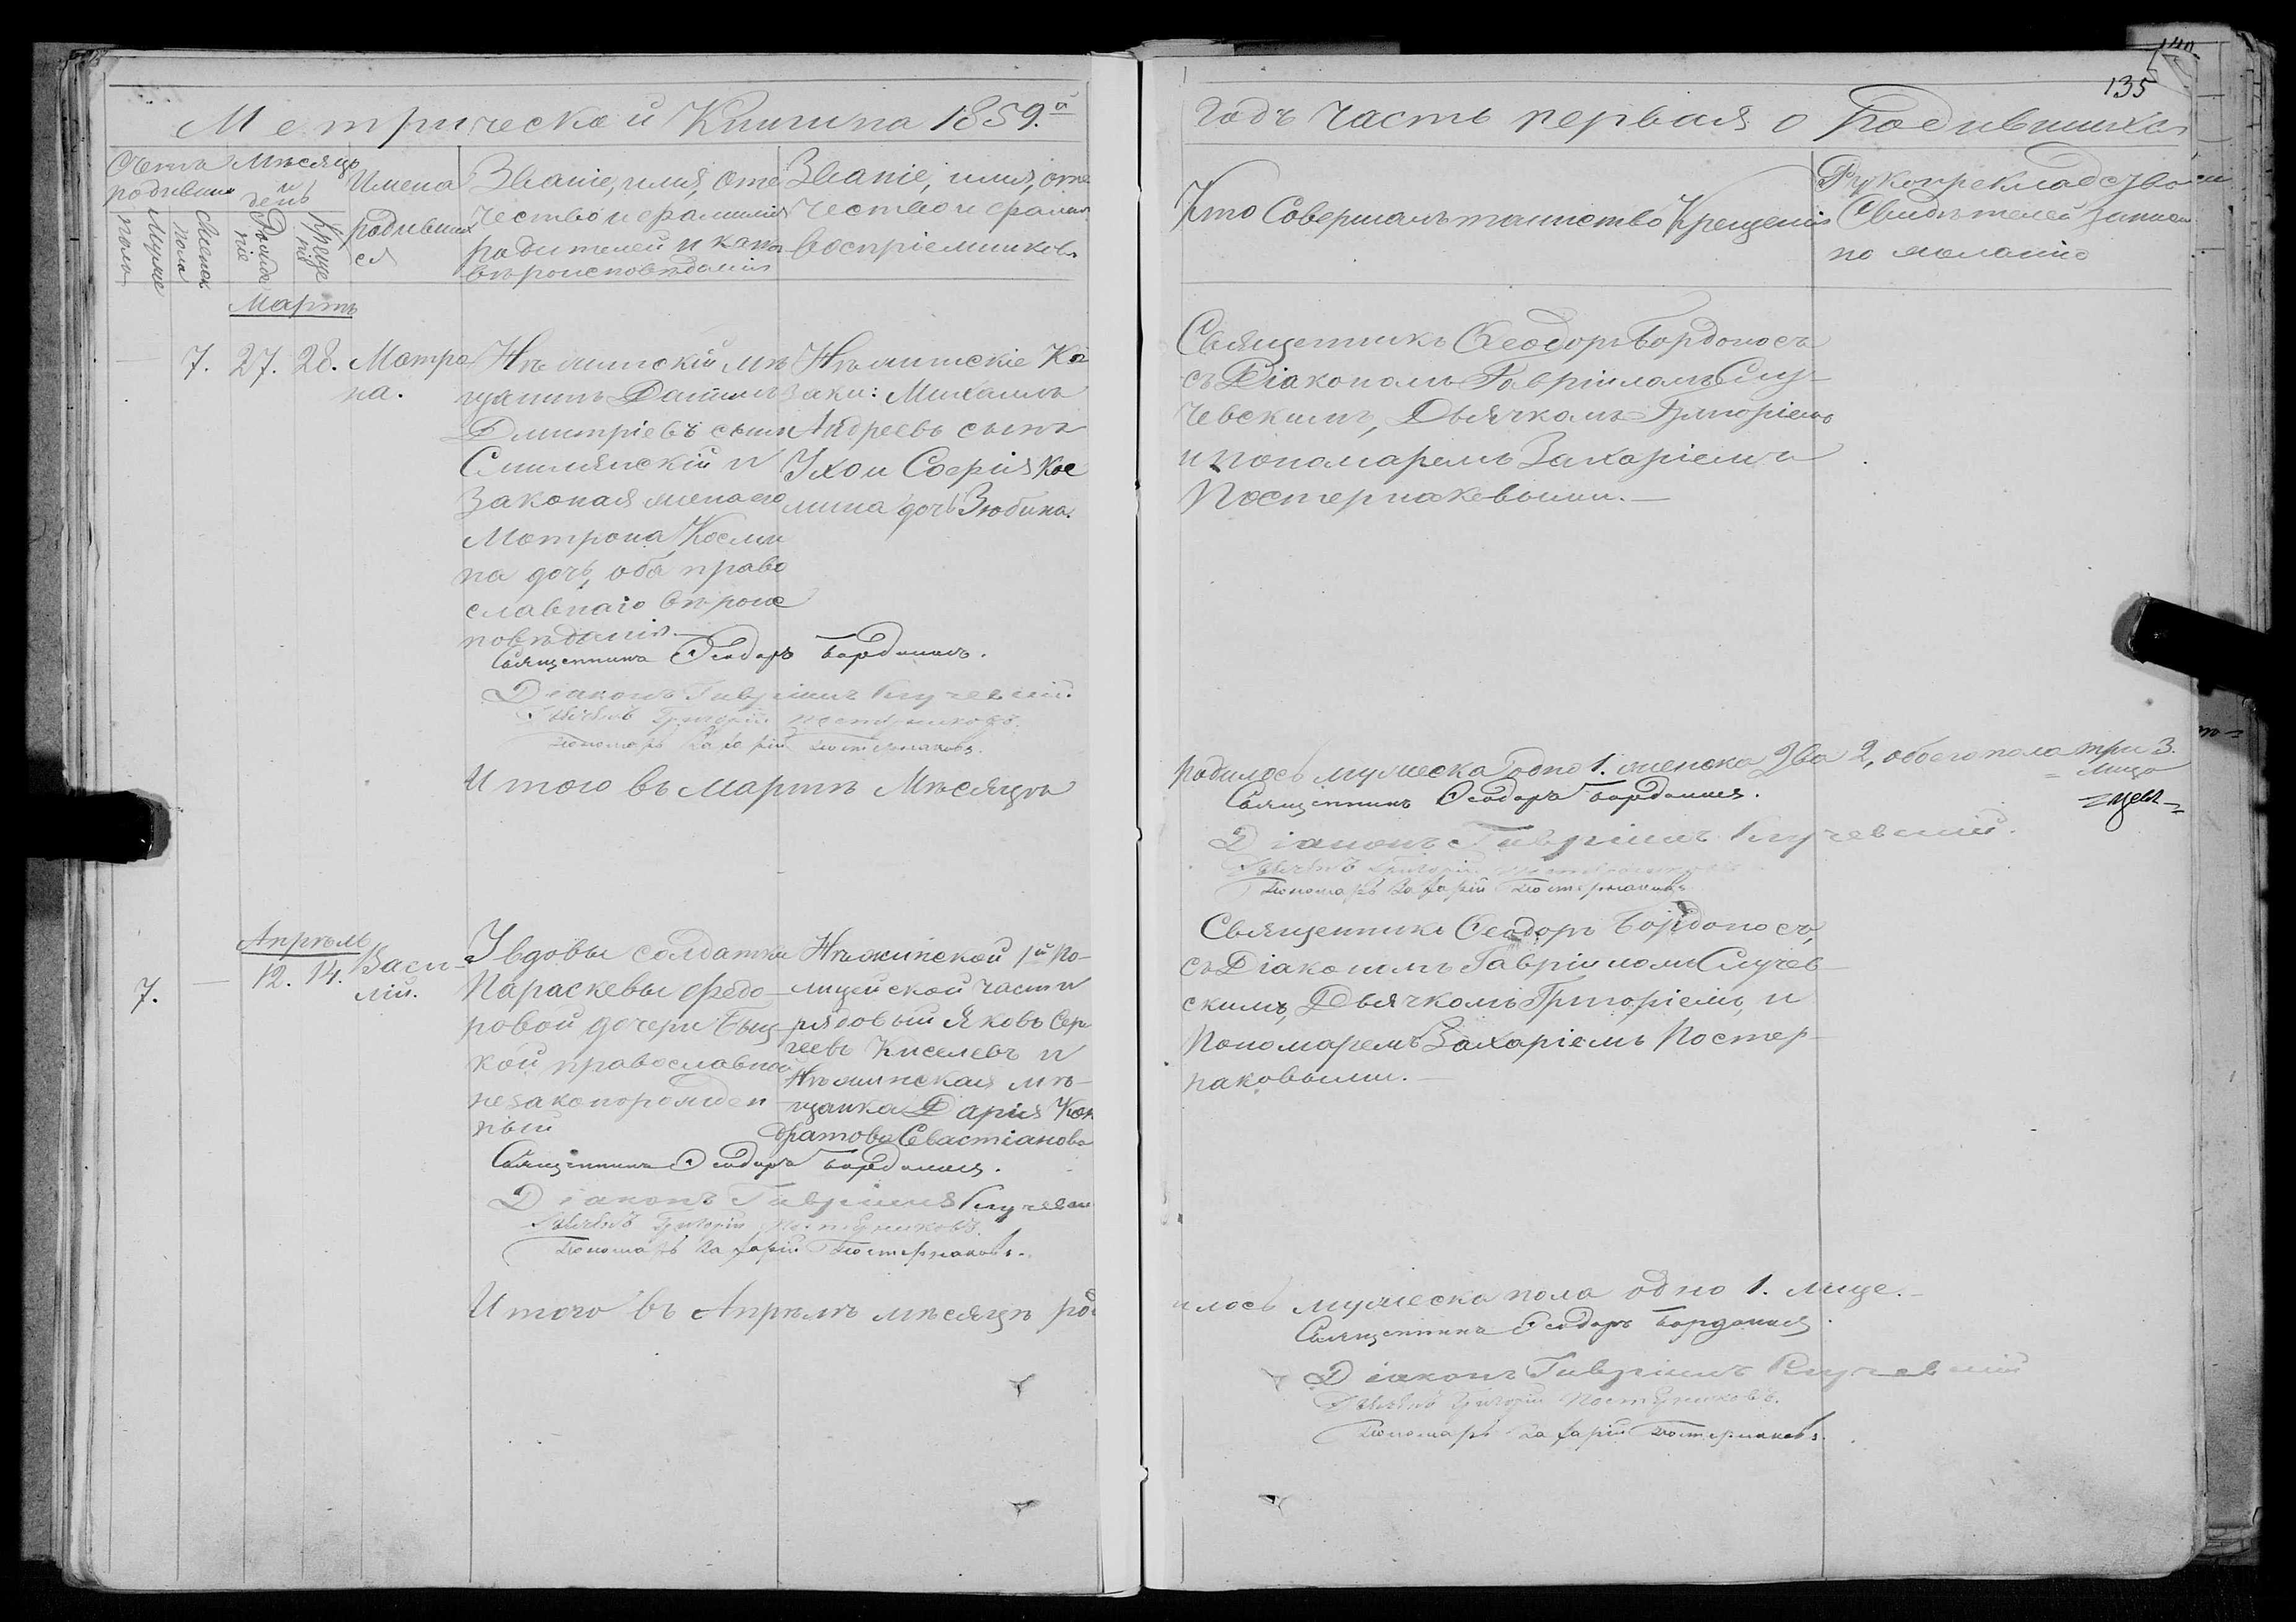 135
Метрической Книги на 1859.й
годъ часть первая о Родившихся
Счетъ родивших
Мѣсяцъ и день
Имена родивших ся
Звание, имя, отечество и фамилия родителей и какого вѣроисповѣдания
Звание, имя, отечество и фамилия восприемниковъ
Кто Совершалъ таинство Крещения
Рукоприкладство Свидѣтелей записи по желанию
Мужес пола
Женск пола
Рожде ние
Креще ния
Мартъ
7. 27. 28. Матро
на.
Нѣжинский мѣ
щанинъ Даниилъ
Дмитриевъ сынъ
Смилянский и
Законая жена его
Матрона Косми
на дочь, оба право
славнаго вѣроис
повѣдания.
Нѣжинские Ко
заки: Михаилъ
Андреевъ сынъ
Ухо и София Кос
мина дочь Зюбина.
Священникъ Ѳеодоръ Бордоносъ
съ Діакономъ Гавріиломъ Слу-
чевскимъ, Дьячкомъ Григоріемъ
и пономаремъ Захаріемъ
Постернаковыми.—
Священникъ Ѳеодоръ Бордоносъ.
Діаконъ Гавріилъ Случевский.
Дьячекъ Григорій Постернаковъ.
Пономарь Захарій Постернаковъ.
Итого въ Мартѣ Мѣсяцѣ
родилось мужеска одно 1. женска Два 2, обоего пола три 3.
лица
Священникъ Ѳеодоръ Бордоносъ.
Діаконъ Гавріилъ Случевский.
Дьячекъ Григорій Постернаковъ
Пономарь Захарій Постернаковъ.
Апрѣль
7. — 12. 14. Васи-
лій.
У вдовы солдатки
Параскевы Федо-
ровой дочери Быц
кой православной
незаконорожден
ный
Нѣжинской 1й По-
лицейской части
рядовый Яковъ Сер
геевъ Киселевъ и
Нѣжинская мѣ-
щанка Дарія Кон
дратова Севастіанова
Священникъ Ѳеодоръ Бордоносъ,
съ Діакономъ Гавріиломъ Случев-
скимъ, Дьячкомъ Григоріемъ, и
Пономаремъ Захаріемъ Постер-
наковыми.—
Священникъ Ѳеодоръ Бордоносъ.
Діаконъ Гавріилъ Случевский
Дьячекъ Григорій Постернаковъ.
Пономарь Захарій Постернаковъ.
Итого въ Апрѣлѣ мѣсяцѣ род
илось мужеска пола одно 1. лице.—
Священникъ Ѳеодоръ Бордоносъ.
Діаконъ Гавріилъ Случевский
Дьячекъ Григорій Постернаковъ.
Пономарь Захарій Постернаковъ.